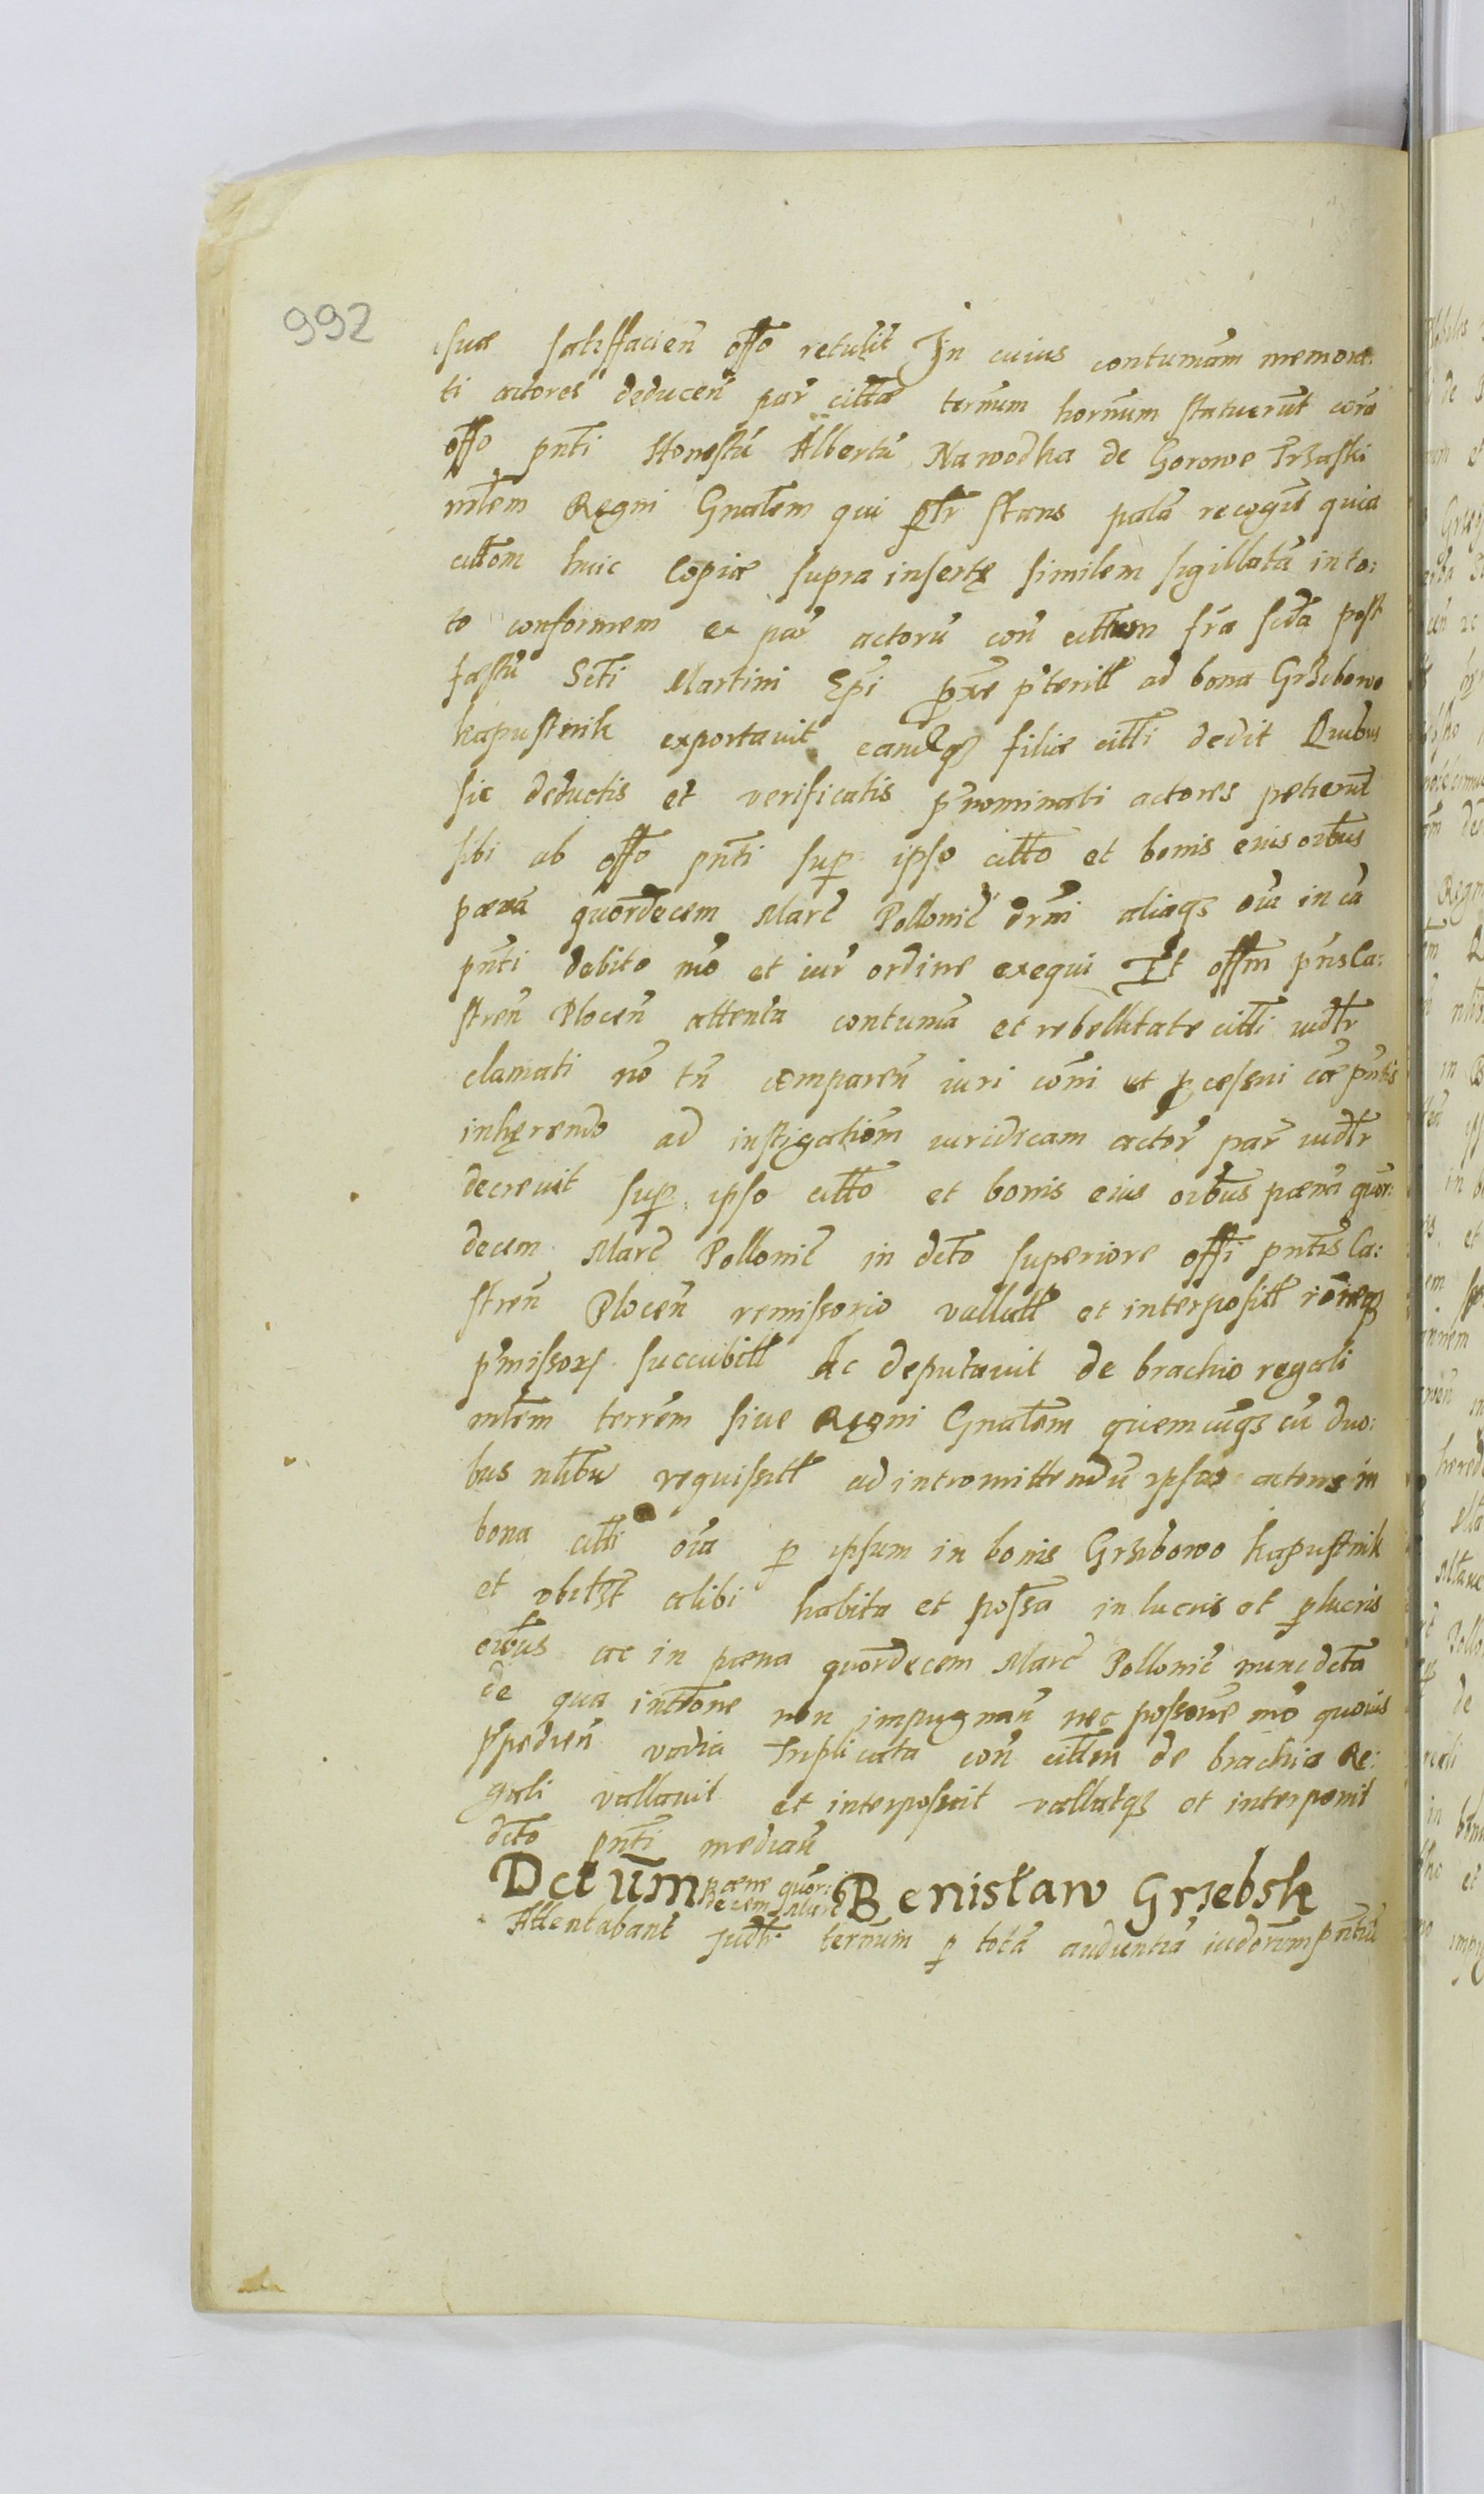 992
suæ satisfacien̄ offo retulit In cuius contumām memora:
ti actores deducen̄ par cittæ termum hornum statuerūt corā
offo pn̄ti Honestū Albertū Nawodka de Gorowe Trzaski
mlem Regni Gnalem qui pltr stans palā recogūt quia
cittom huic Copiæ supra insertę similem sigillatā in to:
to conformem ex par actorū con̄ cittum fr̄a scda post
festū Scti Martini Epi pxe p̄terill ad bona Grzebowo
kapustnik exportauit eamq̃ filiæ citti dedit Quibus
sic deductis et verificatis p̄nominati actores petierūt
sibi ab offo pn̄ti sup ipso citto et bonis eius oībus
pænā quordecem Marc Pollonic drm̄i aliaqȝ oīa in cā
pn̄ti debito mō et iur ordine exequi Et offm pn̄s Ca:
stren̄ Plocen̄ attenta contumā et rebellitate citti iudltr
clamati nō tn̄ comparen̄ iuri cōni et pcessui cæ pn̄tis
inhęrendo ad instigatiōm iuridicam actor par iudltr
decreuit sup ipso citto et bonis eius oībus pænā quor:
decem Marc Pollonic in dcto superiore offi pn̄tis Ca:
stren̄ Plocen̄ remissorio vallatt et interpositt
p̄missorȝ succubitt Ac deputauit de brachio regali
mlem terrem siue Regni Gnalem quemcūqȝ cū duo:
bus nlibus requisitt ad intromittendū ipsos actores in
bona citti oīa p ipsum in bonis Grzebowo kapustnik
et vbilȝt alibi habita et possa in lucris et plucris
oībus ac in pæna quordecem Marc Pollonic nunc dcta
de qua intrōne non impugnan̄ nec possōne mō quouis
p̄pedien̄ vadia triplicata con̄ cittm de brachio Re:
gali vallauit et interposuit vallatqȝ et interponit
dcto pn̄ti median̄
Dctūm pæne quor: decem Marc Benisław Grzebsk
Attentabant Judltr termum p totā audientiā iudōrum pn̄tiū